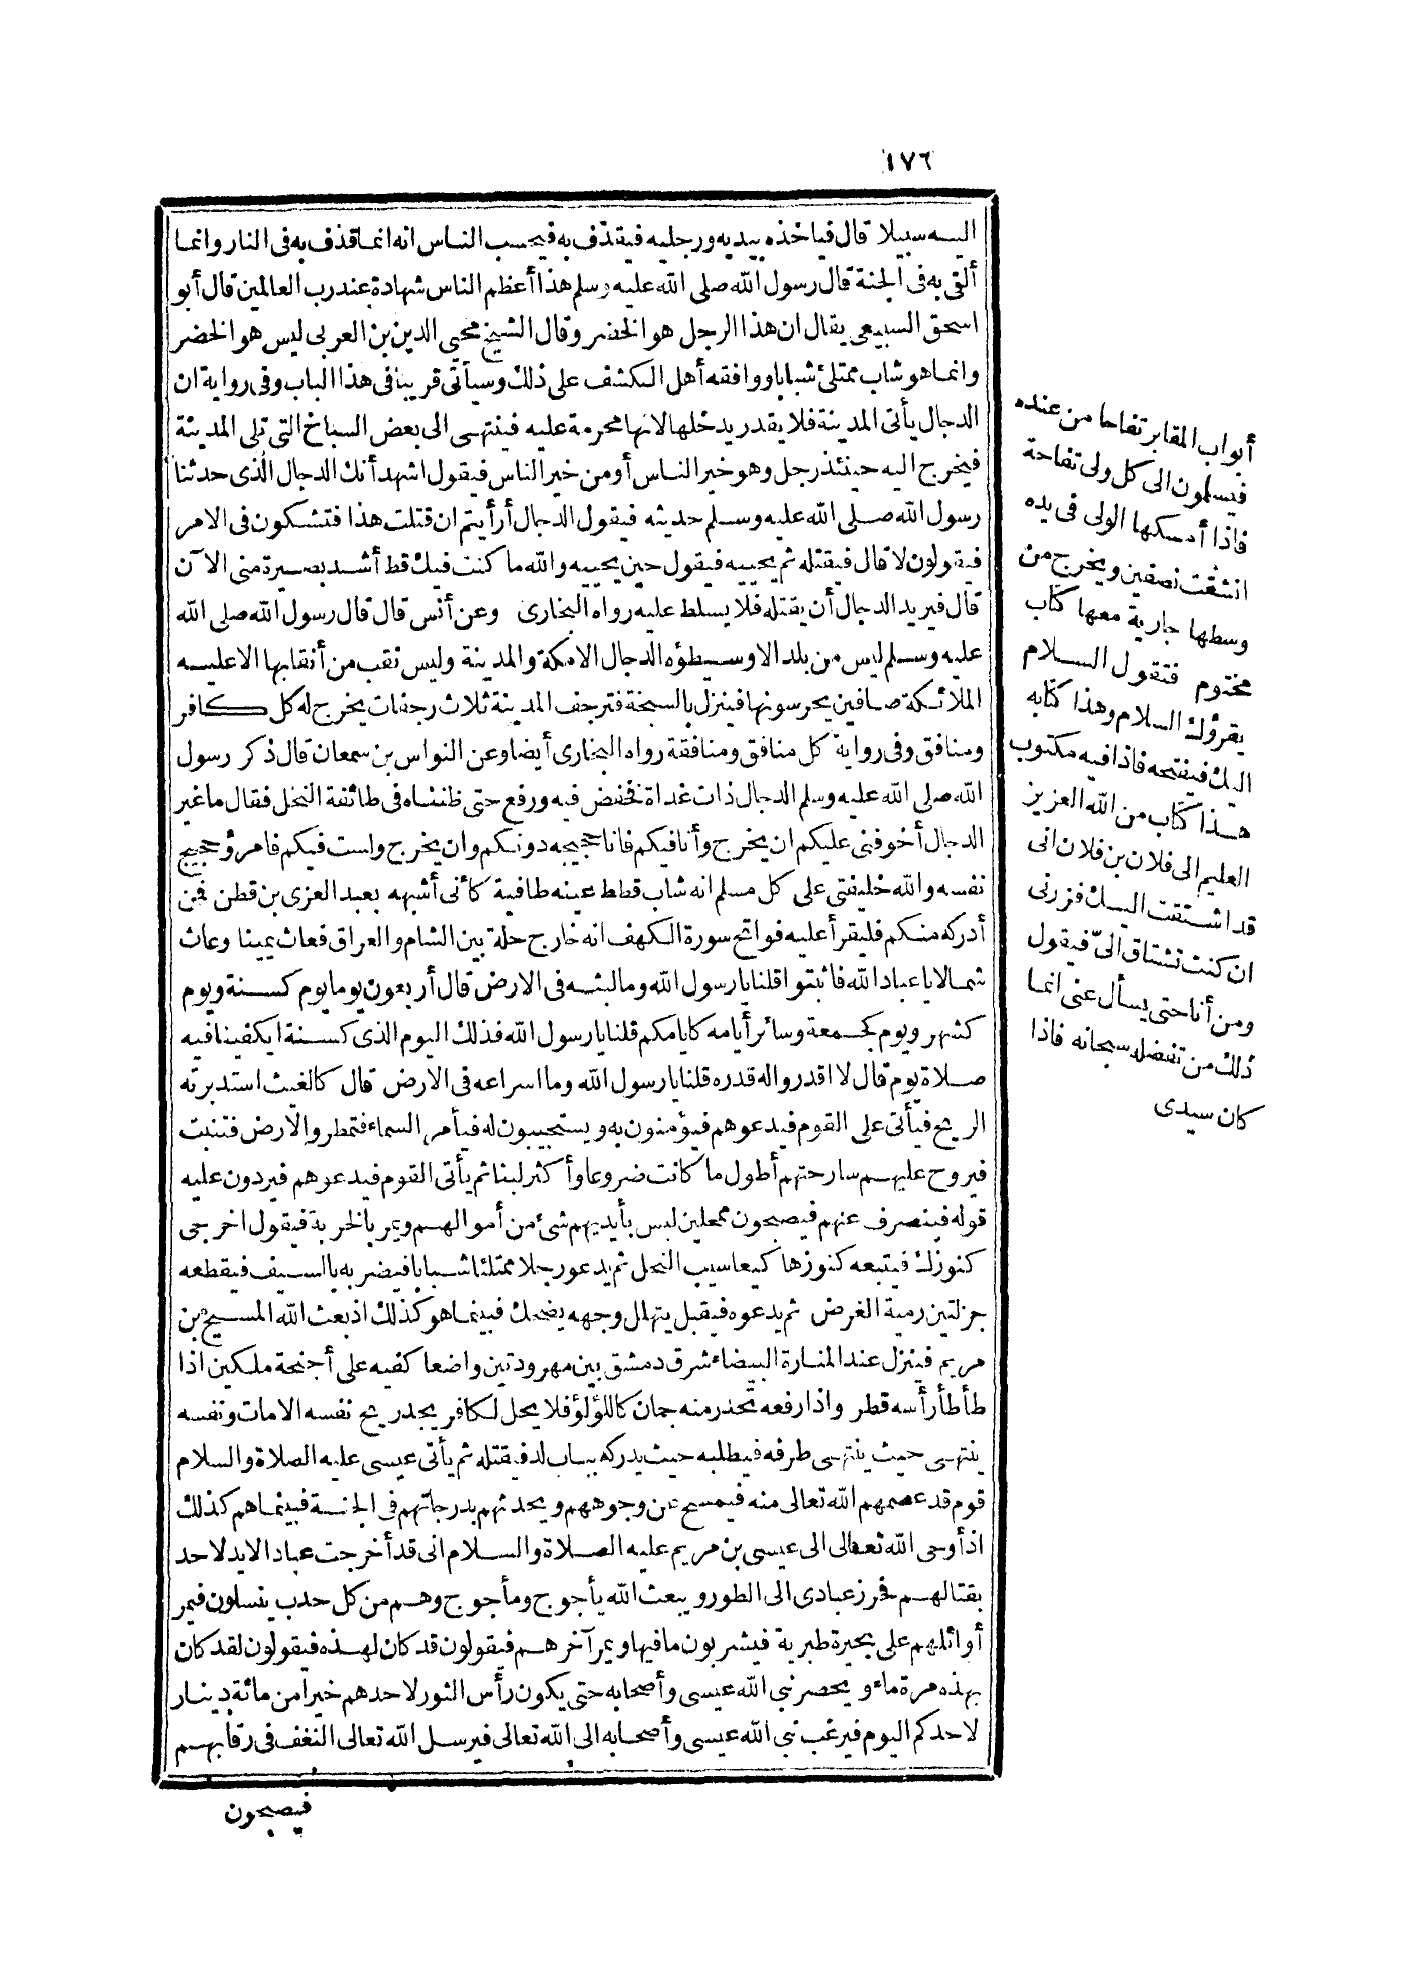 ١٧٦
اليه سبيلا قال فيأخذه بيديه ورجليه فيقذف به فيحسب الناس انه انما قذف به فى النار وانما
ألقى به فى الجنة قال رسول الله صلى الله عليه وسلم هذا أعظم الناس شهادة عند رب العالمين قال أبو
اسحق السبيعى يقال ان هذا الرجل هو الخضر وقال الشيخ محيى الدين بن العربى ليس هو الخضر
وانما هو شاب ممتلئ شبابا ووافقه أهل الكشف على ذلك وسيأتى قريبا فى هذا الباب وفى رواية ان
الدجال يأتى المدينة فلا يقدر يدخلها لانها محرمة عليه فينتهى الى بعض السباخ التى تلى المدينة
فيخرج اليه حينئذ رجل وهو خير الناس أو من خير الناس فيقول اشهد أنك الدجال الذى حدثنا
رسول الله صلى الله عليه وسلم حديثه فيقول الدجال أرأيتم ان قتلت هذا فتشكون فى الامر
فيقولون لا قال فيقتله ثم يحييه فيقول حين يحييه والله ما كنت فيك قط أشد بصيرة منى الآن
قال فيريد الدجال أن يقتله فلا يسلط عليه رواه البخارى وعن أنس قال قال رسول الله صلى الله
عليه وسلم ليس من بلد الا وسيطؤه الدجال الا مكة والمدينة وليس نقب من أنقابها الا عليه
الملائكة صافين يحرسونها فينزل بالسبخة فترجف المدينة ثلاث رجفات يخرج له كل كافر
ومنافق وفى رواية كل منافق ومنافقة رواه البخارى أيضا وعن النواس بن سمعان قال ذكر رسول
الله صلى الله عليه وسلم الدجال ذات غداة فخفض فيه ورفع حتى ظنناه فى طائفة النخل فقال ما غير
الدجال أخوفنى عليكم ان يخرج وأنا فيكم فانا حجيجه دونكم وان يخرج ولست فيكم فامرؤ حجيج
نفسه والله خليفتى على كل مسلم انه شاب قطط عينه طافية كأنى أشبهه بعبد العزى بن قطن فمن
أدركه منكم فليقرأ عليه فواتح سورة الكهف انه خارج حلة بين الشام والعراق فعاث يمينا وعاث
شمالا يا عباد الله فاثبتوا قلنا يا رسول الله وما لبثه فى الارض قال أربعون يوما يوم كسنة ويوم
كشهر ويوم كجمعة وسائر أيامه كايامكم قلنا يا رسول الله فذلك اليوم الذى كسنة ايكفينا فيه
صلاة يوم قال لا اقدروا له قدره قلنا يا رسول الله وما اسراعه فى الارض قال كالغيث استدبرته
الريح فيأتى على القوم فيدعوهم فيؤمنون به ويستجيبون له فيأمر السماء فتمطر والارض فتنبت
فيروح عليهم سارحتهم أطول ما كانت ضروعا وأكثر لبنا ثم يأتى القوم فيدعوهم فيردون عليه
قوله فينصرف عنهم فيصبحون ممحلين ليس بأيديهم شئ من أموالهم ويمر بالخربة فيقول اخرجى
كنوزك فيتبعه كنوزها كيعاسيب النحل ثم يدعو رجلا ممتلئا شبابا فيضربه بالسيف فيقطعه
جزلتين رمية الغرض ثم يدعوه فيقبل يتهلل وجهه يضحك فبينما هو كذلك اذ بعث الله المسيح بن
مريم فينزل عند المنارة البيضاء شرق دمشق بين مهرودتين واضعا كفيه على أجنحة ملكين اذا
طأطأ رأسه قطر واذا رفعه تحدر منه جمان كاللؤلؤ فلا يحل لكافر يجد ريح نفسه الا مات ونفسه
ينتهى حيث ينتهى طرفه فيطلبه حيث يدركه بباب لد فيقتله ثم يأتى عيسى عليه الصلاة والسلام
قوم قد عصمهم الله تعالى منه فيمسح عن وجوههم ويحدثهم بدرجاتهم فى الجنة فبينما هم كذلك
اذ أوحى الله تعالى الى عيسى بن مريم عليه الصلاة والسلام انى قد أخرجت عباد الا يد لاحد
بقتالهم فحرز عبادى الى الطور ويبعث الله يأجوج ومأجوج وهم من كل حدب ينسلون فيمر
أوائلهم على بحيرة طبرية فيشربون ما فيها ويمر آخرهم فيقولون قد كان لهذه فيقولون لقد كان
بهذه مرة ماء ويحصر نبى الله عيسى وأصحابه حتى يكون رأس الثور لاحدهم خيرا من مائة دينار
لاحدكم اليوم فيرغب نبى الله عيسى وأصحابه الى الله تعالى فيرسل الله تعالى النغف فى رقابهم
فيصبحون
أبواب المقابر تفاحا من عنده
فيسلمون الى كل ولى تفاحة
فاذا أمسكها الولى فى يده
انشقت نصفين ويخرج من
وسطها جارية معها كتاب
مختوم فتقول السلام
يقرؤك السلام وهذا كتابه
اليك فيفتحه فاذا فيه مكتوب
هذا كتاب من الله العزيز
العليم الى فلان بن فلان انى
قد اشتقت اليك فزرنى
ان كنت تشتاق الىّ فيقول
ومن أنا حتى يسأل عنى انما
ذلك من تفضله سبحانه فاذا
كان سيدى